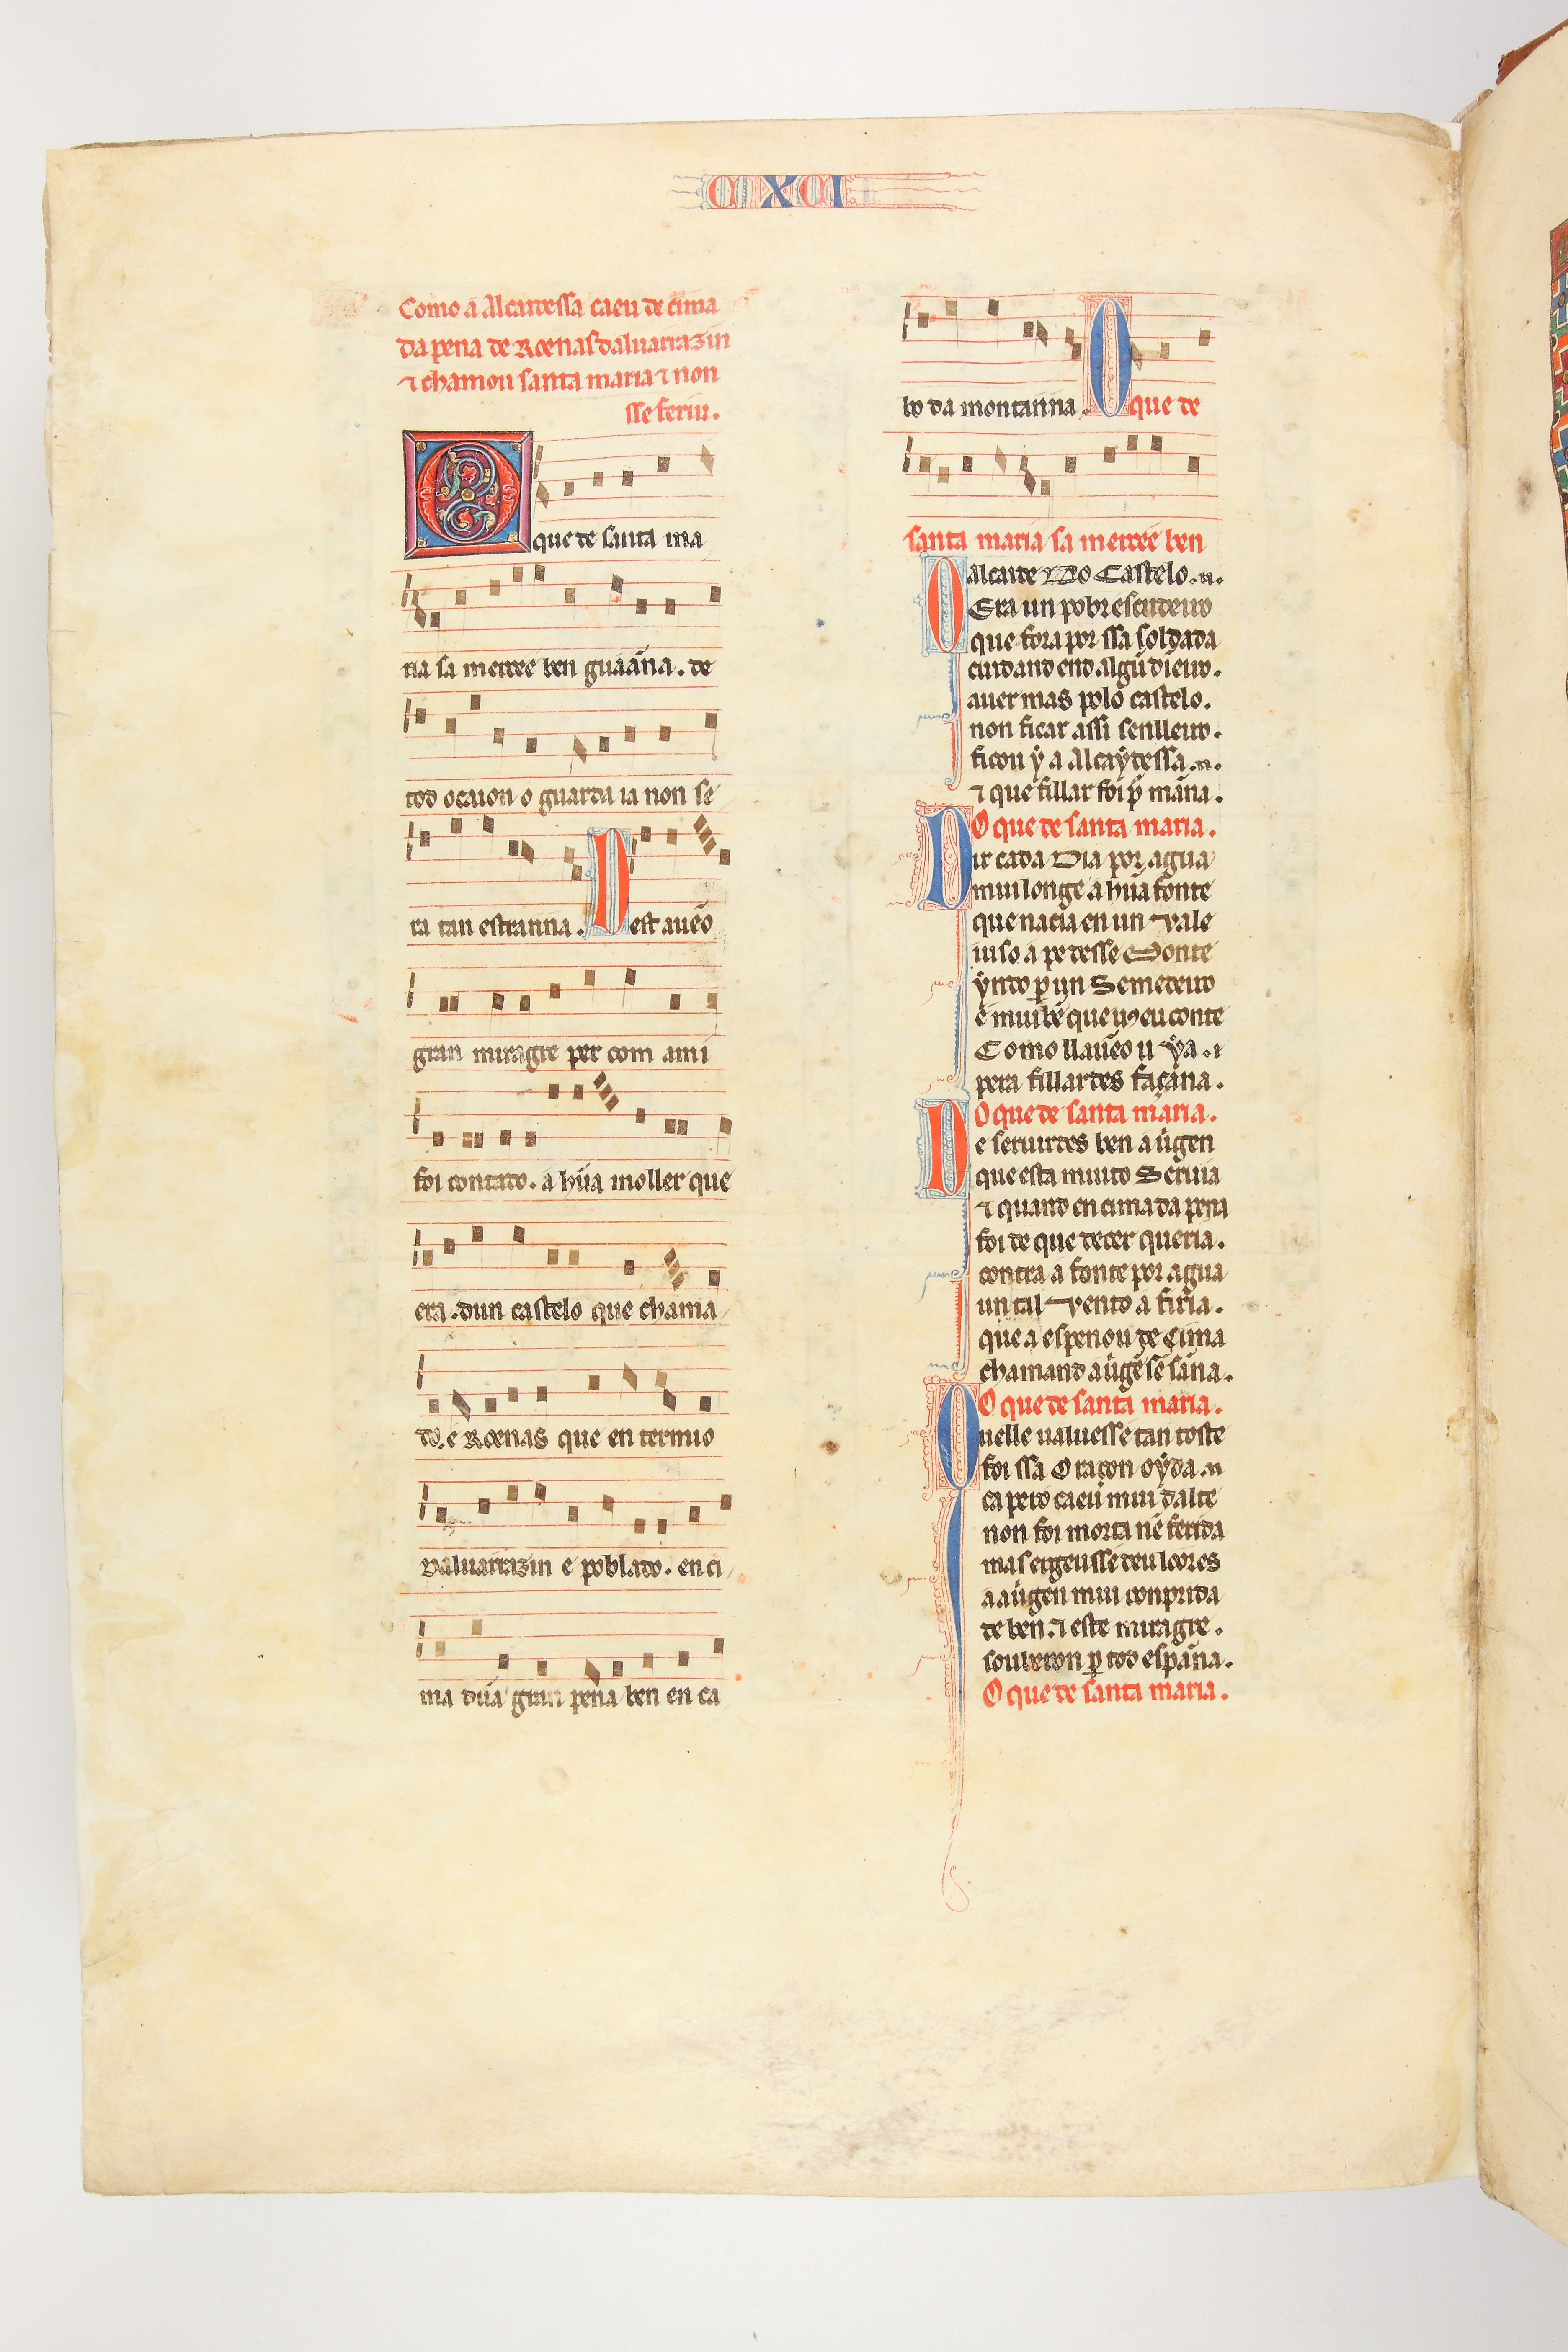 CXCI
Como a Alcaidessa caeu de cima
da pena de Roenas daluarrazin
⁊ chamou santa maria ⁊ non
sse feriu.
O que de santa ma
ria sa mercee ben guaãna. de
tod ocaion o guarda ia non se
ra tan estranna. Dest auẽo
gran miragre per com ami
foi contado. a hũa moller que
era. dun castelo que chama
do. e Roenas que en termio
Daluarrazin e poblado. en ci
ma dũa gran pena ben en ca
bo da montanna. O que de
santa maria sa mercee ben
O alcaide Do Castelo.
Era un pobr escudeiro
que fora por ssa soldada
cuidand end algũ dieiro.
auer mas polo castelo.
non ficar assi senlleiro.
ficou ẏ a Alcaẏdessa.
⁊ que fillar foi p̃ mãna.
O que de santa maria.
Dir cada Dia por agua
mui longe a hũa fonte
que nacia en un vale
iuso a pe desse Monte
ẏndo ꝑ ẏn Semedeiro
e mui bẽ que uꝯ eu conte
Como ll auẽo u ẏa
pera fillardes façãna.
O que de santa maria.
De seruirdes ben a ũgen
que esta muito Seruia
⁊ quand en cima da pena
foi de que decer queria.
contra a fonte por agua
un tal vento a firia.
que a espenou de Cima
chamand a ũgẽ sẽ sãna.
O que de santa maria.
Quelle ualuesse tan toste
foi ssa Oraçon oẏda.
ca pero caeu mui dalte
non foi morta nẽ ferida
mas ergeusse deu loores
a a ũgen mui conprida
de ben. ⁊ este miragre.
souberon ꝑ tod espãna.
O que de santa maria.